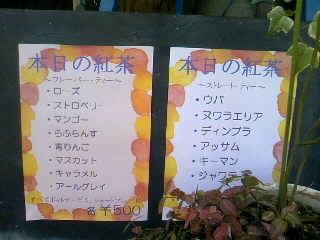 本日の紅茶
～フレーバーティー～
・ローズ
・ストロベリー
・マンゴー
・らふらんす
・青りんご
・マスカット
・キャラメル
・アールグレイ
各￥500
本日の紅茶
～ストレートティー～
・ウバ
・ヌワラエリア
・ディンブラ
・アッサム
・キーマン
・ジャワティ